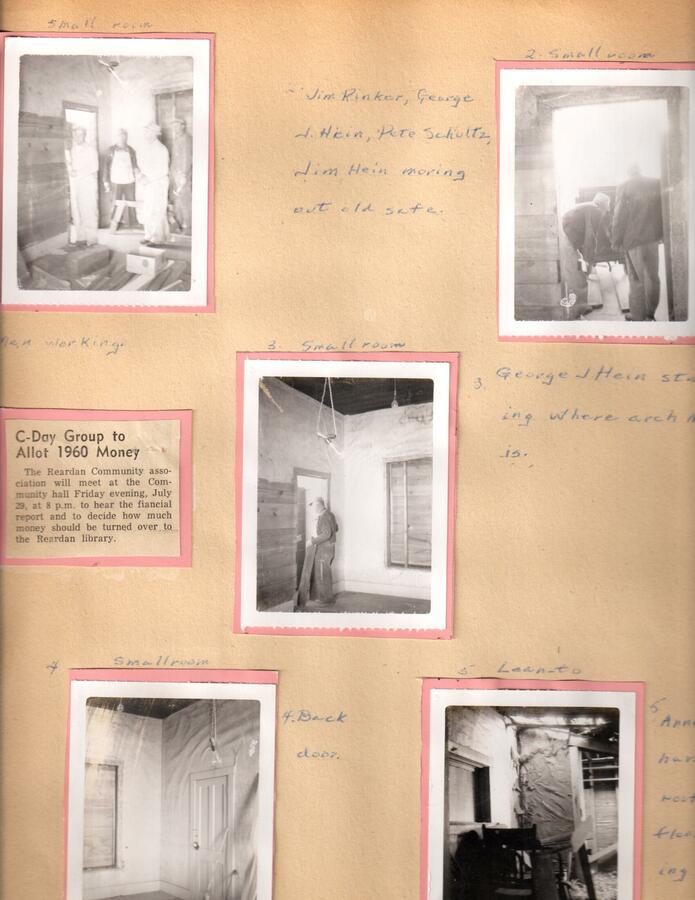 Small room
2. Small room
2. Jim Rinker, George
J. Hein, Pete Schultz,
Jim Hein moving
out old safe.
Men working.
3. Small room
3. George J Hein sta
ing where arch
is.
C-Day Group to
Allot 1960 Money
The Reardan Community asso-
ciation will meet at the Com-
munity hall Friday evening, July
29, at 8 p.m. to hear the fiancial
report and to decide how much
money should be turned over to
the Reardan library.
4 Small room
4. Back
door.
5 Lean-to
5.
hav
roo
floo
ing